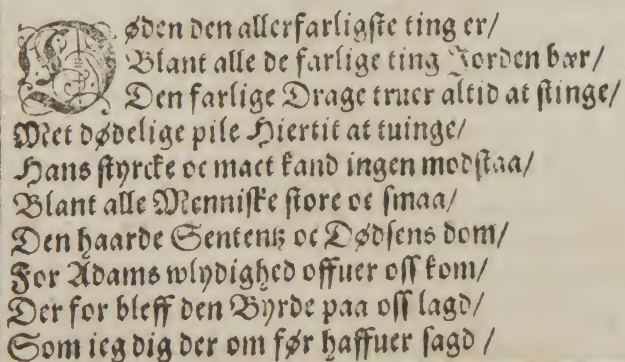 Døden den allerfarligste ting er/
Blant alle de farlige ting Jorden bær/
Den farlige Drage truer altid at stinge/
Met dødelige pile Hiertit at tuinge/
Hans styrcke oc mact kand ingen modstaa/
Blant alle Menniske store oc smaa/
Den haarde Sententz oc Dødsens dom/
For Adams wlydighed offuer oss kom/
Der for bleff den Byrde paa oss lagd/
Som ieg dig der om før haffuer sagd /